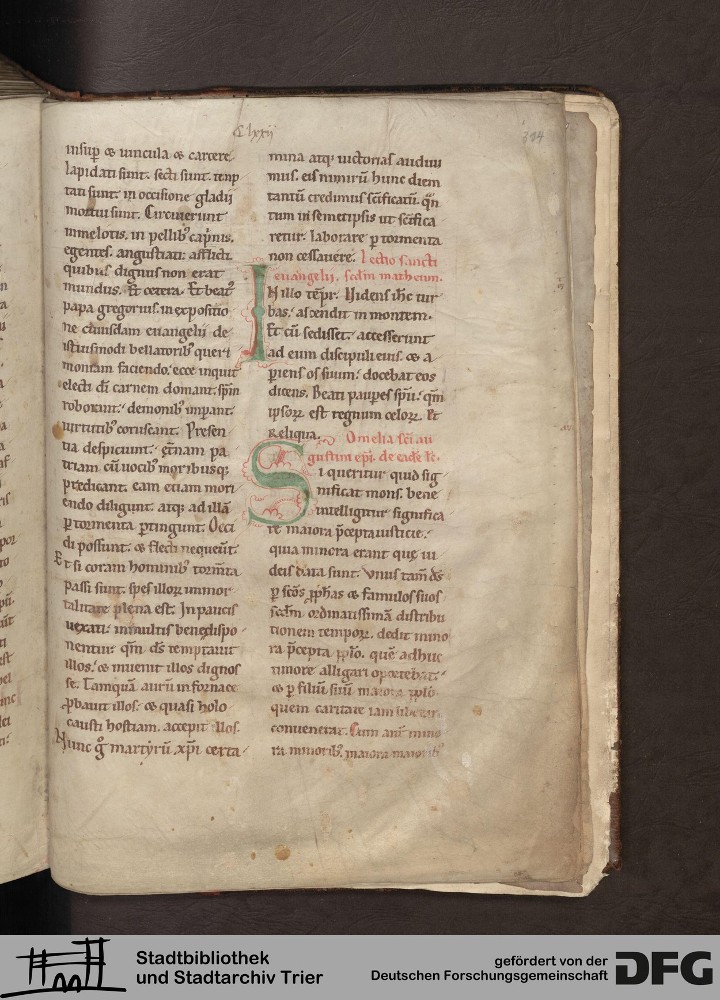 C lxxij
324
insup̄ ⁊ uincula ⁊ carcere.
lapidati sunt. secti sunt. temp
tati sunt. in occisione gladij
mortui sunt. Circuierunt
in melotis. in pellib; cap̄nis.
egentes. angustiati. afflicti.
quibus dignus non erat
mundus. Et cetera. Et beatꝰ
papa gregorius. in expositio
ne cuiusdam euangelii de
istiusmodi bellatorib; queri
moniam faciendo. ecce inquit
electi dī carnem domant. spm̄
roborant. demonib; imꝑant.
uirtutib; coruscant. Presen
tia despiciunt. et̄nam pa
triam cū uocib; moribusq;
predicant. eam etiam mori
endo diligunt. atq; ad illā
ꝑ tormenta ꝑtingunt. Occi
di possunt. ⁊ flecti nequeūt.
Et si coram hominib; torm̄ta
passi sunt. spes illoꝝ inmor
talitate plena est. In paucis
uexati. in multis bene dispo
nentur. qm̄ ds̄ temptauit
illos. ⁊ inuenit illos dignos
se. Tamquā aurū in fornace
ꝓbauit illos. ⁊ quasi holo
causti hostiam. accepit illos.
Nunc ḡ martyrū xp̄i certa
mina atq; uictorias audiui
mus. eis nimirū hunc diem
tantū credimus sc̄ificatū. qn̄
tum in semetipsis ut sc̄ifica
retur. laborare ꝑ tormenta
non cessauere. Lectio sancti
euangelii. scdm̄ matheum.
IN illo tēpr. Uidens ih̄c tur
bas. ascendit in montem.
Et cū sedisset. accesserunt
ad eum discipuli eius. ⁊ a
periens os suum. docebat eos
dicens. Beati pauꝑes spū. qm̄
ipsoꝝ est regnum celoꝝ. Et
Reliqua. Omelia sc̄i au
gustini ep̄i. de eadē le.
Si queritur quid sig
nificat mons. bene
intelligitur significa
re maiora p̄cepta iusticie.
quia minora erant que iu
deis data sunt. Unus tam̄ ds̄
ꝑ sc̄os ꝓph̄as ⁊ famulos suos
scdm̄ ordinatissimā distribu
tionem tempoꝝ. dedit mino
ra p̄cepta pp̄lo. quē adhuc
timore alligari oportebat.
⁊ ꝑ filiū suū maiora pp̄lo
quem caritate iam liberari
conuenerat. Cum aut̄ mino
ra minorib; maiora maiorib;
Stadtbibliothek
und Stadtarchiv Trier
gefördert von der
Deutschen Forschungsgemeinschaft
DFG